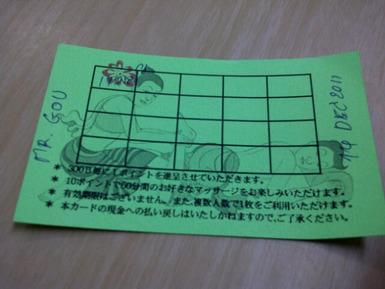 MR. GOU
14 DEC 2011
＊ 300日毎に1ポイントを進呈させていただきます。
＊ 10ポイントで60分間のお好きなマッサージをお楽しみいただけます。
＊ 有効期限はございません。また、複数人数で1枚をご利用いただけます。
＊ 本カードの現金への払い戻しはいたしかねますので、ご了承ください。